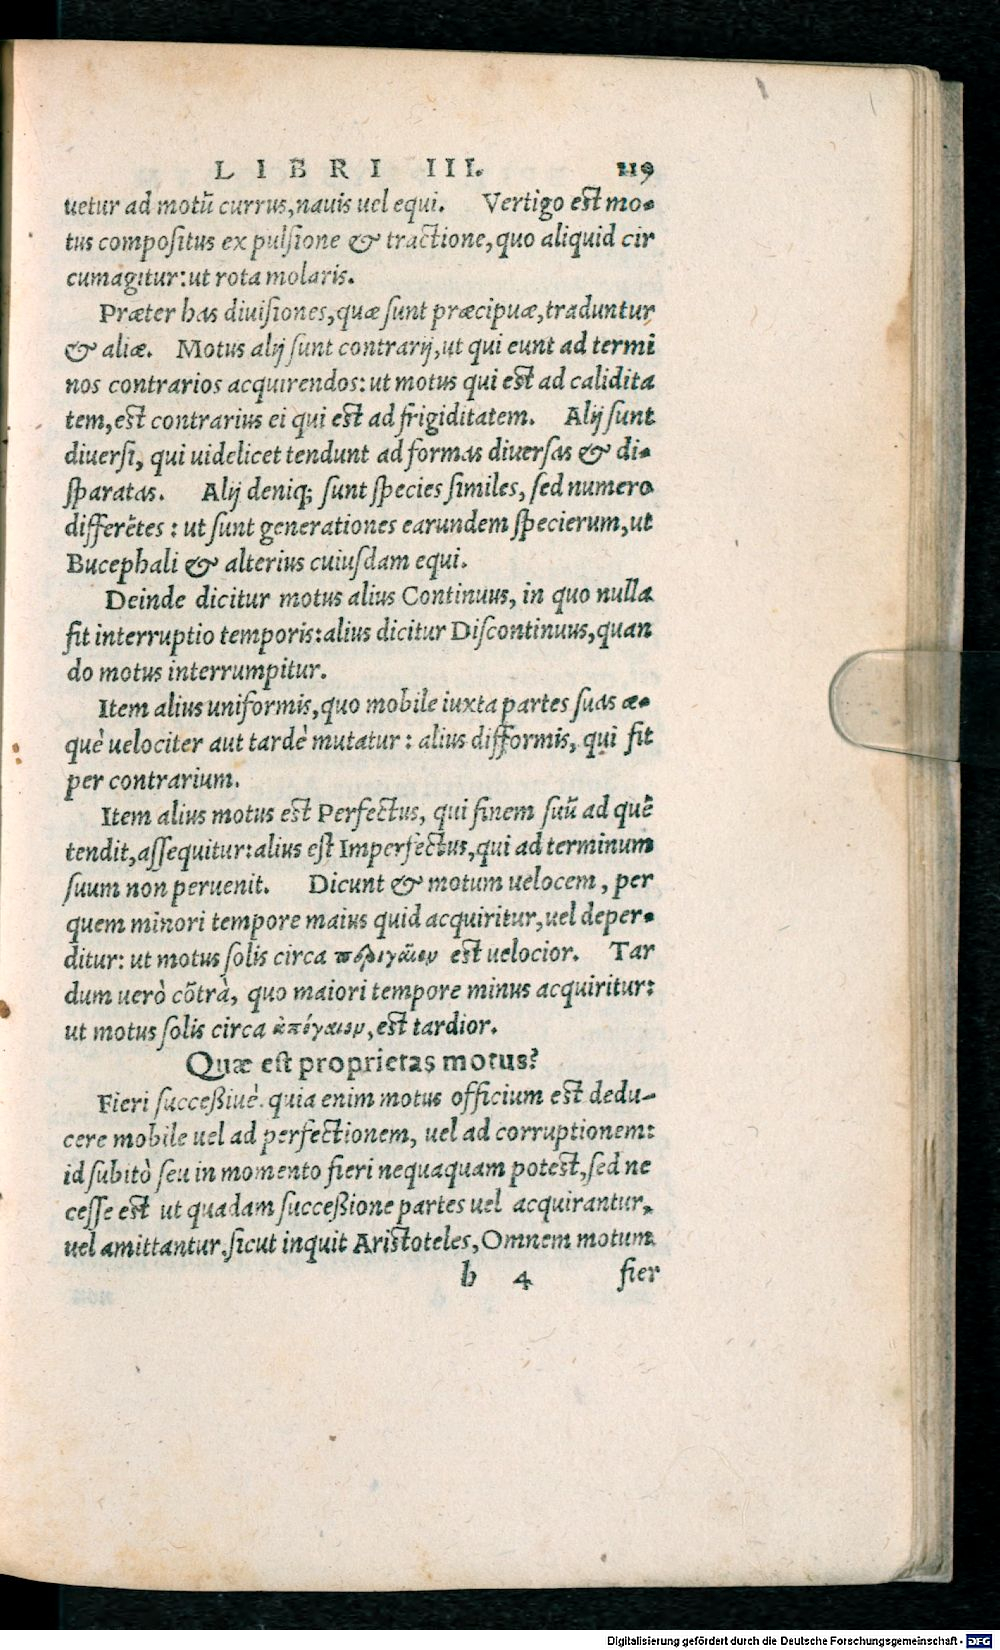 LIBRI III. 119
uetur ad motũ currus, nauis uel equi. Vertigo est mo-
tus compositus ex pulsione & tractione, quo aliquid cir
cumagitur: ut rota molaris.
Præter has diuisiones, quæ sunt præcipuæ, traduntur
& aliæ. Motus alij sunt contrarij, ut qui eunt ad termi
nos contrarios acquirendos: ut motus qui est ad calidita
tem, est contrarius ei qui est ad frigiditatem. Alij sunt
diuersi, qui uidelicet tendunt ad formas diuersas & di-
sparatas. Alij deniq; sunt species similes, sed numero
differẽtes : ut sunt generationes earundem specierum, ut
Bucephali & alterius cuiusdam equi.
Deinde dicitur motus alius Continuus, in quo nulla
fit interruptio temporis: alius dicitur Discontinuus, quan
do motus interrumpitur.
Item alius uniformis, quo mobile iuxta partes suas æ-
què uelociter aut tardè mutatur : alius difformis, qui fit
per contrarium.
Item alius motus est Perfectus, qui finem suũ ad quẽ
tendit, assequitur: alius est Imperfectus, qui ad terminum
suum non peruenit. Dicunt & motum uelocem, per
quem minori tempore maius quid acquiritur, uel deper-
ditur: ut motus solis circa περιγαῖον est uelocior. Tar
dum uerò cõtrà, quo maiori tempore minus acquiritur:
ut motus solis circa ἀπόγαιον, est tardior.
Quæ est proprietas motus?
Fieri succeßiuè. quia enim motus officium est dedu-
cere mobile uel ad perfectionem, uel ad corruptionem:
id subitò seu in momento fieri nequaquam potest, sed ne
cesse est ut quadam succeßione partes uel acquirantur,
uel amittantur, sicut inquit Aristoteles, Omnem motum
b 4 fier
Digitalisierung gefördert durch die Deutsche Forschungsgemeinschaft - DFG